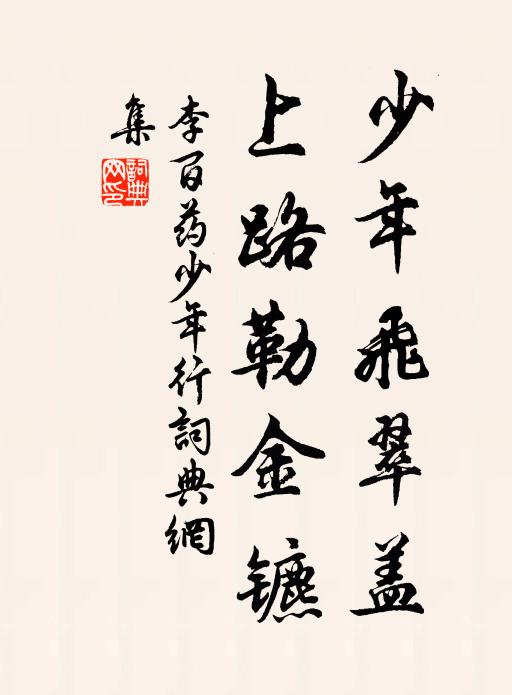 少年飛翠盖
上路勒金镳
李百药少年行詞典網
集
詞典网印